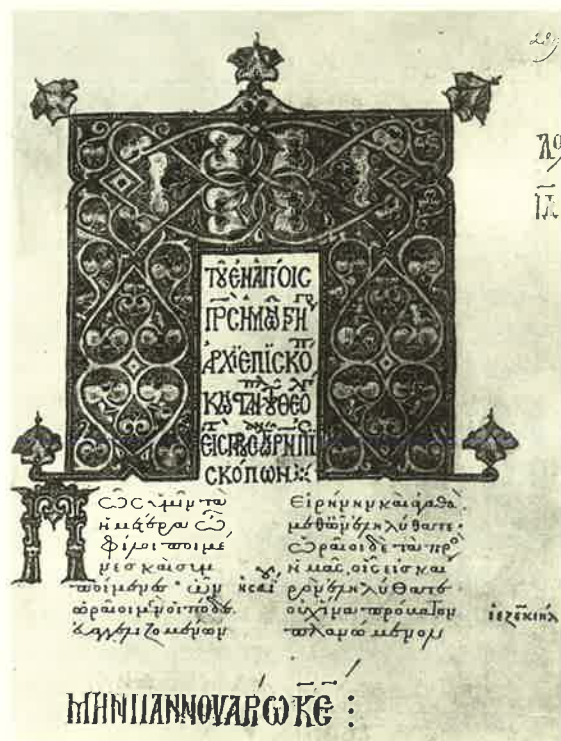 ΤΟΥ ΕΝ ΑΓΙΟΙΣ
ΠΡΣ ΗΜΩΝ ΓΡΗ
ΑΡΧΙΕΠΙΣΚΟ
ΘΕΟ
ΣΚΟΠΩΝ
Πῶς ὑμῖν τὰ
ἡμέτερα ὦ
φίλοι ποιμέ
νες καὶ συμ
ποίμενες ὧν
ὡραῖοι μὲν οἱ πόδες
εὐαγγελιζομένων
ἡσαΐου
εἰρήνην καὶ ἀγαθὰ
μεθ ὧν ἐληλύθατε·
ὡραῖοι δὲ τὰ πρὸς
ἡμᾶς, οἷς εἰς και
ρὸν ἐληλύθατε
οὐχ ἵνα πρόβατον
πλανώμενον
ἰεζεκιηλ
ΜΗΝΙ ΙΑΝΝΟΥΑΡΩ ΚΕ :